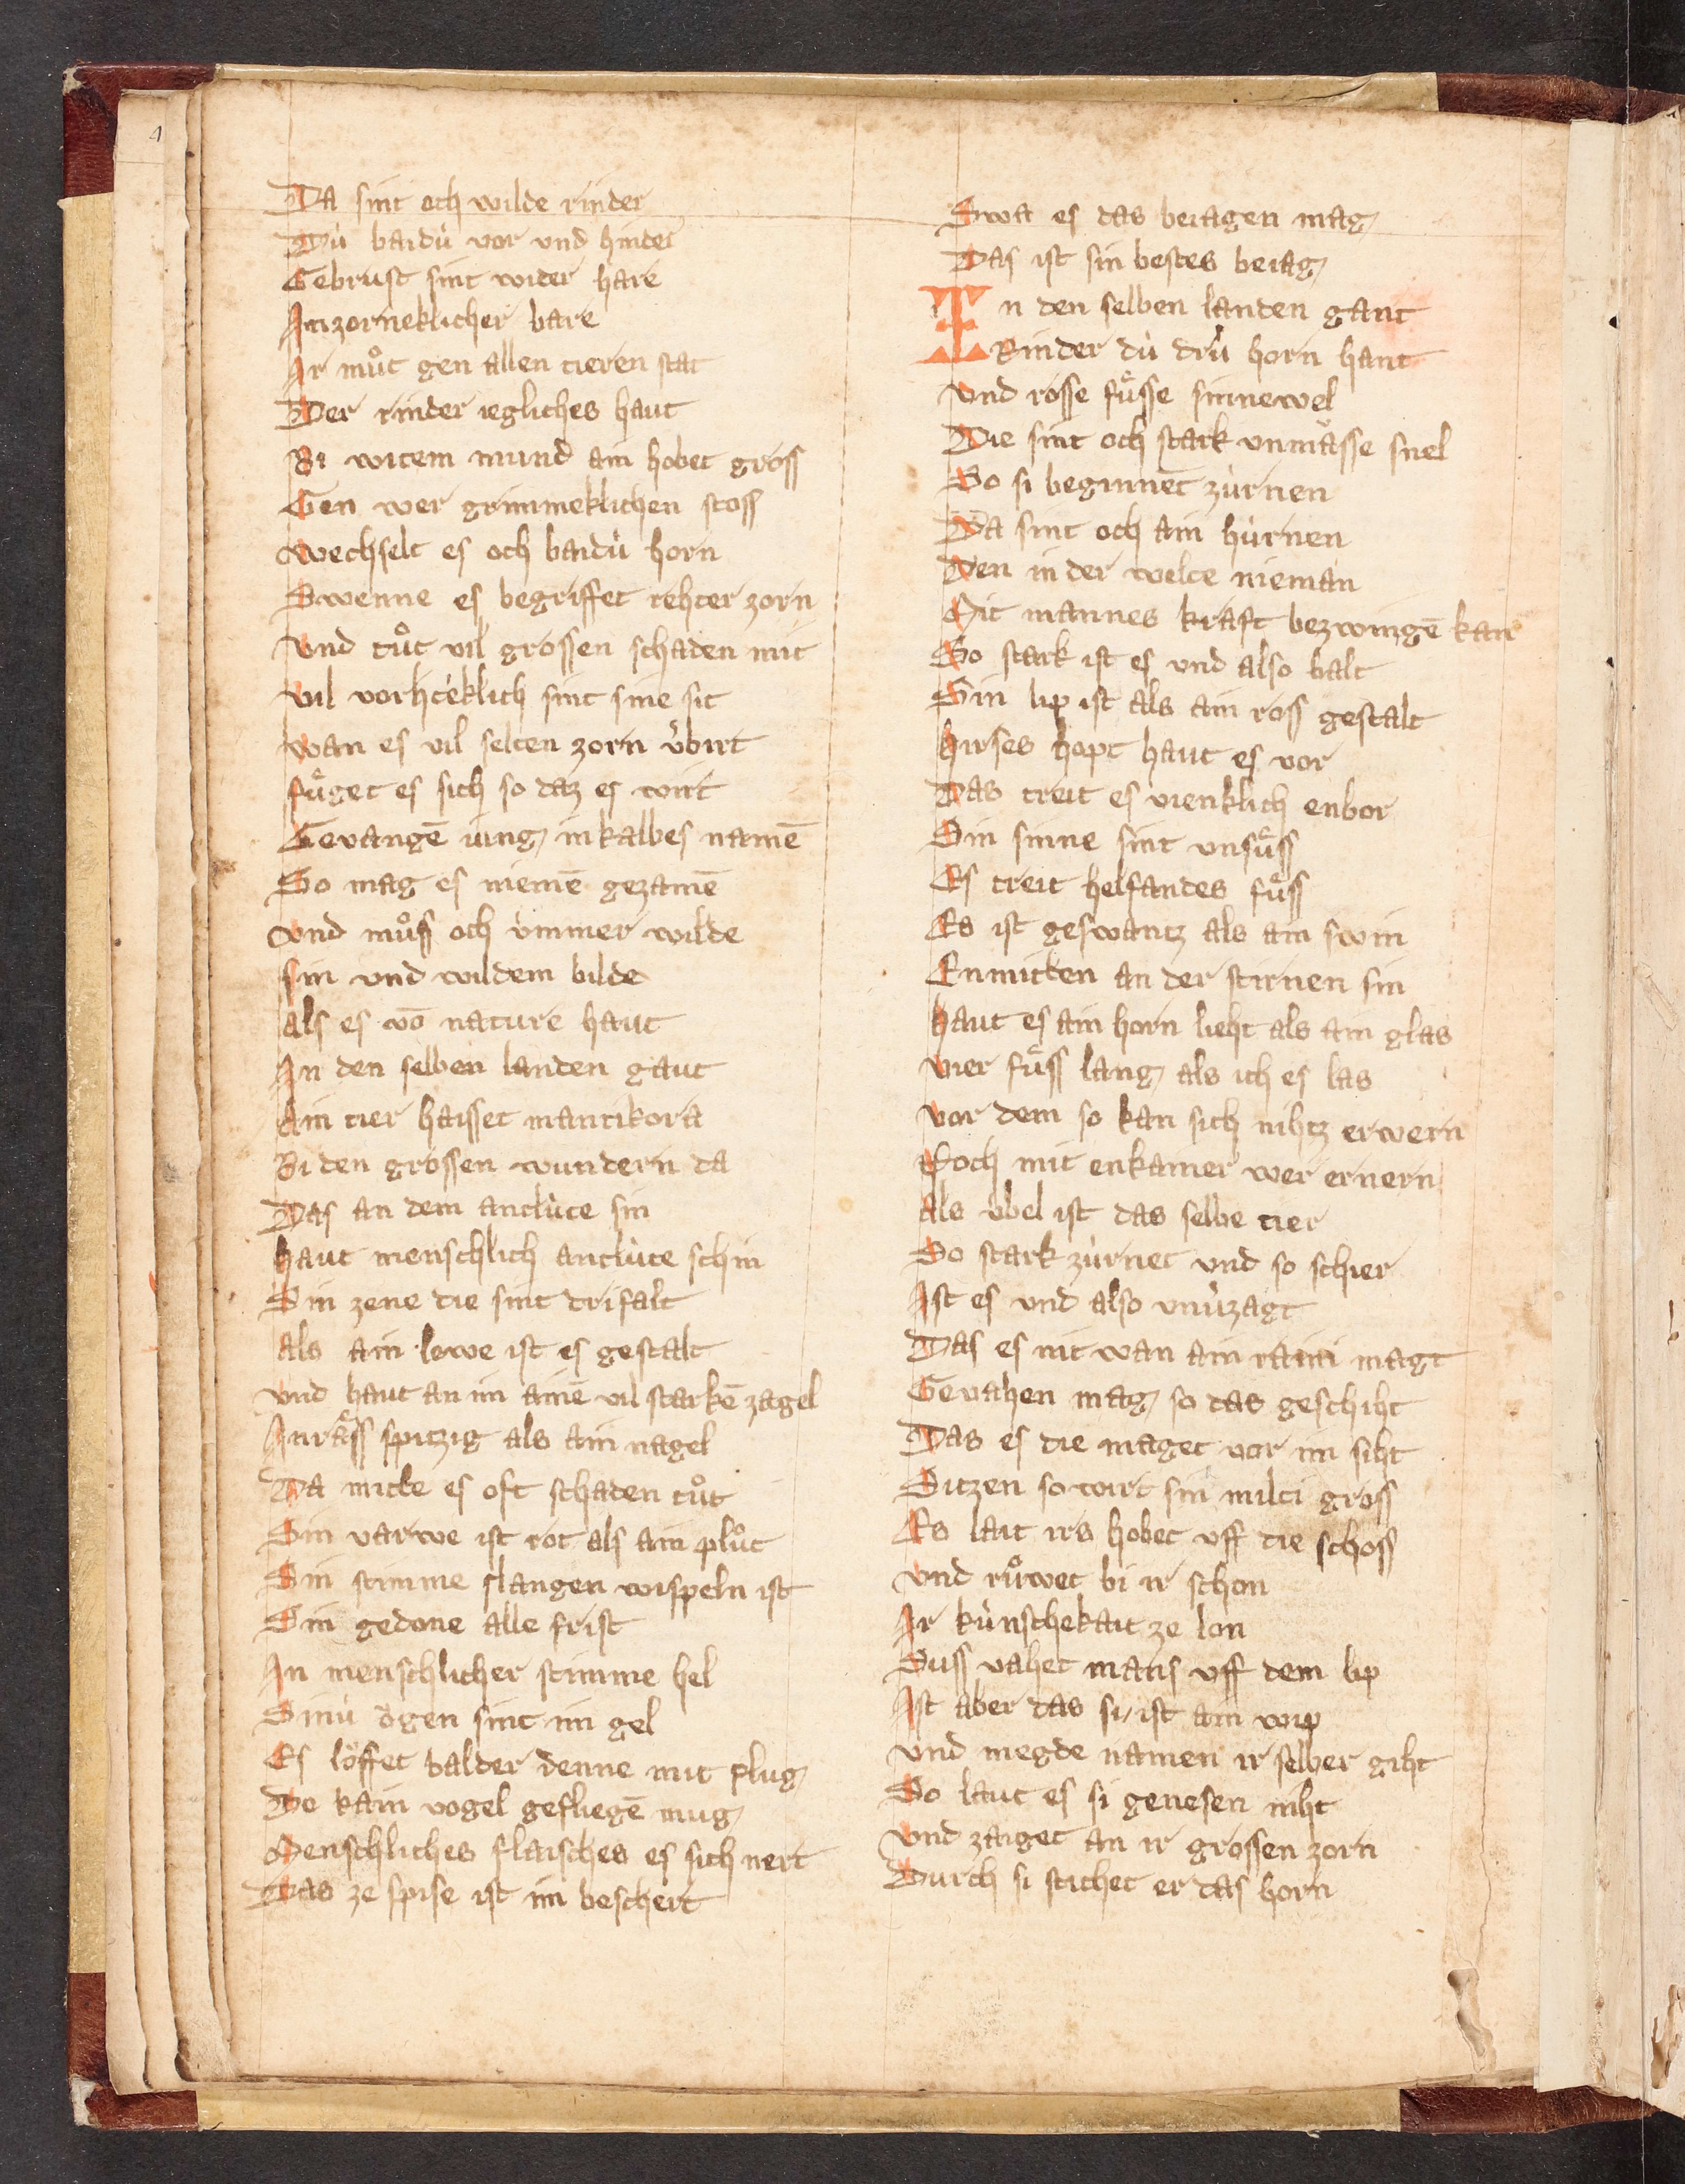 4
Da sint och wilde rinder
Dù baidù vor vnd hinder
Gebrust sint wider hare
In zorneklicher bare
Ir můt gen allen tieren stat
Der rinder iegliches haut
Bi witem mund ain hobet gross
Gen wer grimmeklichen stoss
Wechselt es och baidù horn
Swenne es begriffet rehter zorn
Vnd tůt vil grossen schaden mit
Vil vorhteklich sint sine sit
Wan es vil selten zorn v̀birt
fůget es sich so daz es wirt
Gevangē iung in kalbes namē
So mag es niemē gezamē
Vnd můss och ùmmer wilde
sin vnd wildem bilde
als es vō nature haut
In den selben landen gaut
Ain tier haisset mantikora
Bi den grossen wundern da
Das an dem antlùte sin
haut menschlich antlùte schin
Sin zene die sint drifalt
als ain lowe ist es gestalt
Vnd haut an im ainē vil starkē zagel
In rāss spitzig als ain nagel
Da mitte es oft schaden tůt
Sin varwe ist rot als ain plůt
Sin stimme slangen wispeln ist
Sin gedone alle frist
In menschlicher stimme hel
Sinù ögen sint im gel
Es löffet balder denne mit plug
Do kain vogel gefliegē mug
Menschliches flaisches es sich nert
Das ze spise ist im beschert
Swa es das beiagen mag
Das ist sin bestes beiag
In den selben landen gant
Rinder dù drù horn hant
Vnd rosse fůsse sinnewel
Die sint och stark vnmåsse snel
So si beginnēt zùrnen
Da sint och ain hùrnen
Den in der welte nieman
Mit mannes kraft bezwingē kan
So stark ist es vnd also balt
Sin lip ist als ain ross gestalt
hirses hopt haut es vor
Das treit es vienklich enbor
Sin sinne sint vnsůss
Es treit helfandes fůss
Es ist geswantz als ain swin
Enmitten an der stirnen sin
haut es ain horn lieht als ain glas
vier fůss lang als ich es las
vor dem so kan sich nihtz erwern
Noch mit enkainer wer ernern
als v̀bel ist das selbe tier
So stark zùrnet vnd so schier
Ist es vnd also vnùzagt
Das es nit wan ain raini magt
Gevahen mag so das geschiht
Das es die maget vor im siht
Sitzen so wirt sin milti gross
Es lait irs hobet vff die schoss
Vnd růwet bi ir schon
Ir kùnschekait ze lon
Suss vahet mans vff dem lip
Ist aber das si ist ain wip
Vnd megde namen ir selber giht
So laut es si genesen niht
Vnd zaiget an ir grossen zorn
Durch si stichet er das horn